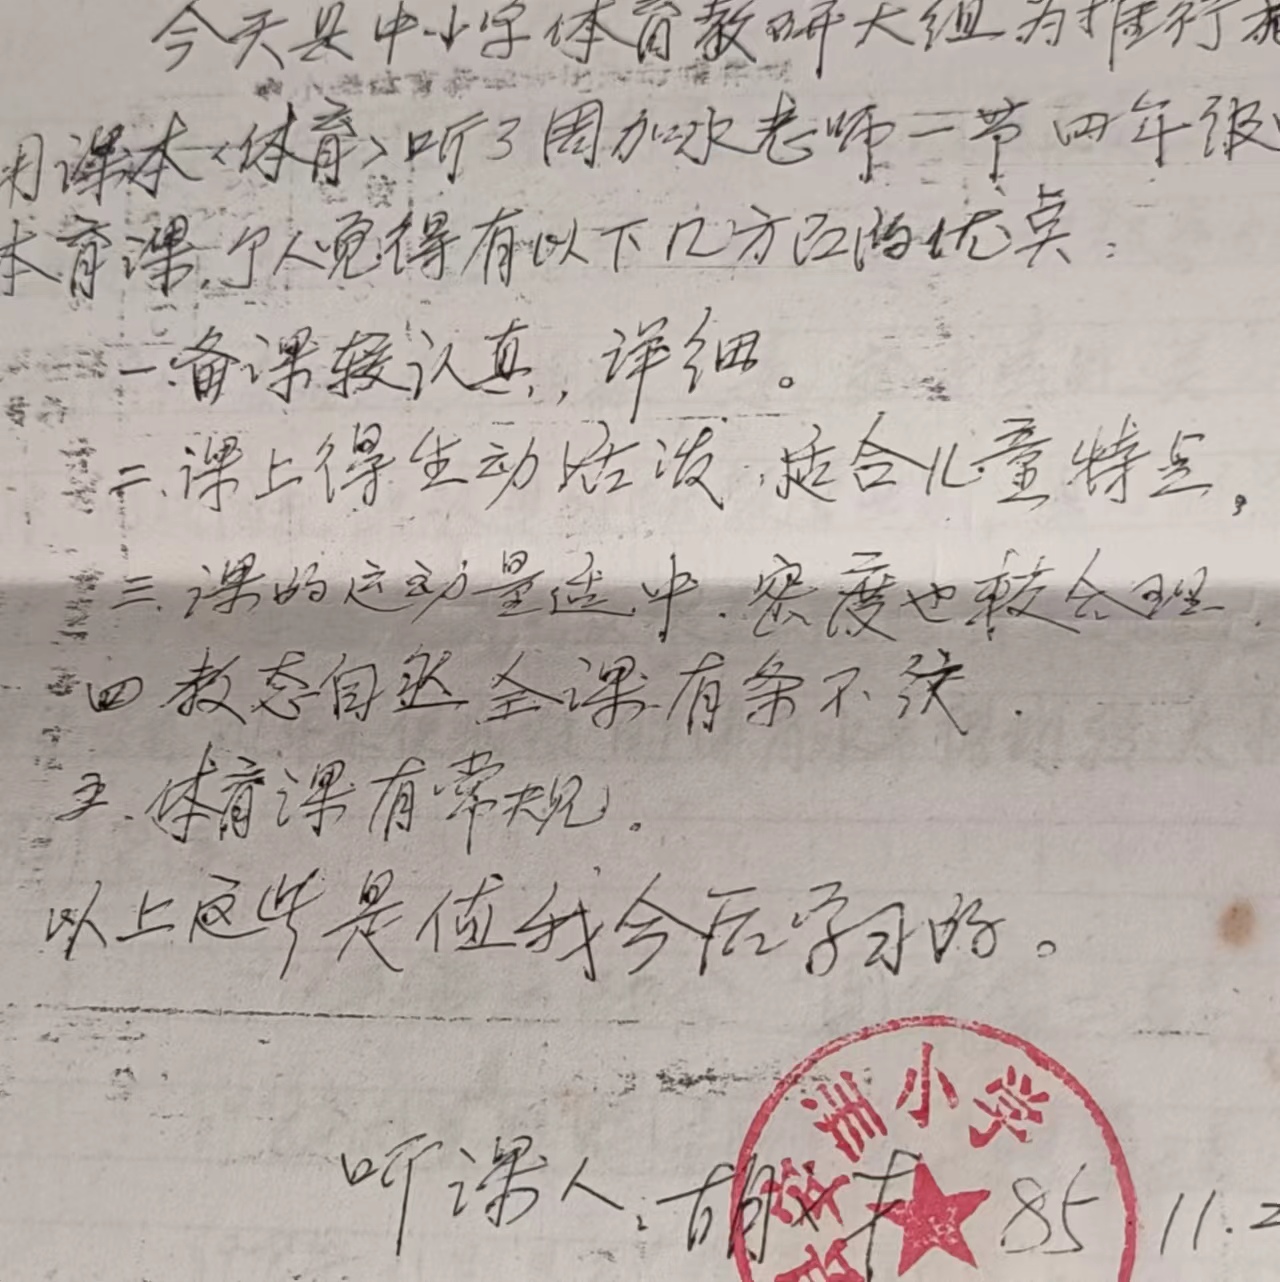 今天县中小学体育教研大组为推行
用课本<体育>听了周加水老师一节四年级
体育课.个人觉得有以下几方面的优点:
一.备课较认真,详细。
二.课上得生动活泼.适合儿童特点,
三.课的运动量适中.密度也较合理.
四教态自然全课有条不紊.
五.体育课有常规.
以上这些是值我今后学习的。
听课人: 胡 85 11.2
小学